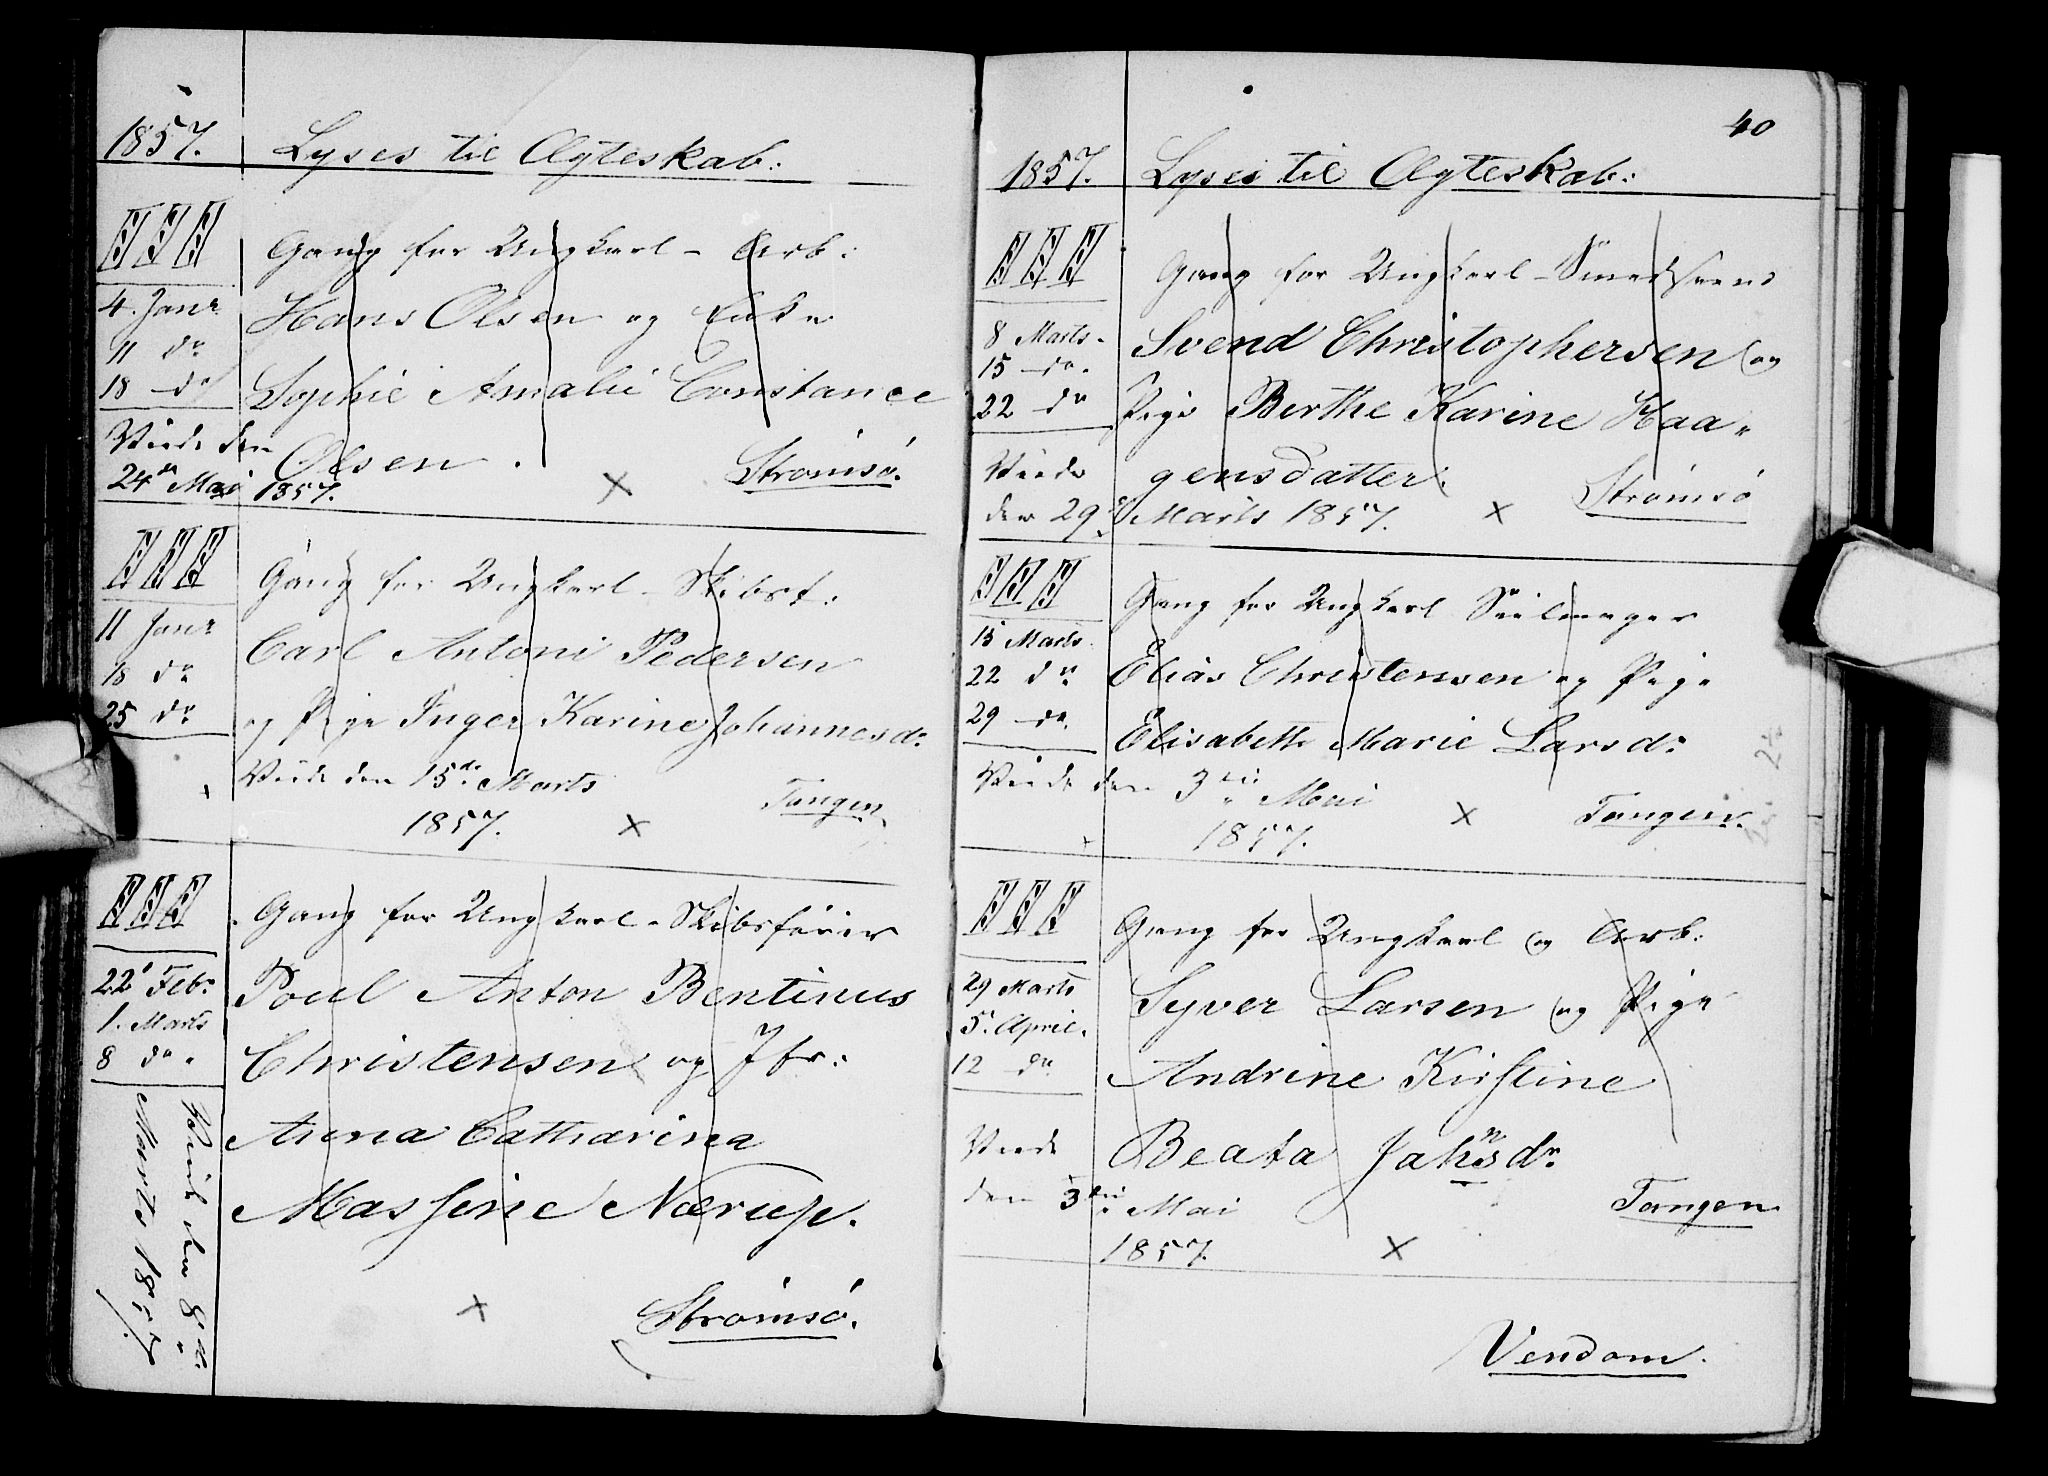 1857. Lyses til Ægteskab:
III Gang for Ungkarl - Arb:
4. Janr Hans Olsen og Enke
11 do
18 do Sophie Amalie Constance
Viede den Olsen. Strømsø.
24de Mai 1857. x
III Gang for Ungkarl - Skibst:
11 Janr Carl Antoni Pedersen
18 do
25 do og Pige Inger Karine Johannesdr
Viede den 15de Marts Tangen
1857. x
III Gang for Ungkarl - Skibsfører
22 Febr Poul Anton Bentinus
1. Marts
8 do Christensen og Jfr:
Anna Catharina
Massine Nærup.
Viede den 8de
Marts 1857
x Strømsø.
40
1857. Lyses til Ægteskab:
III Gang for Ungkarl - Smedsvend
8 Marts Svend Christophersen og
15 do
22 do Pige Berthe Karine Haa-
Viede gensdatter. Strømsø
den 29de Marts 1857. x
III Gang for Ungkarl Seilmager
15 Marts
22 do Elias Christensen og Pige
29 do Elisabeth Marie Larsdr
Viede den 3die Mai x Tangen.
1857.
III Gang for Ungkarl og Arb:
29 Marts Syver Larsen og Pige
5. April.
12 do Andrine Kirstine
Viede Beata Jahnsdr
den 3die Mai Tangen
1857. x
Vendom.